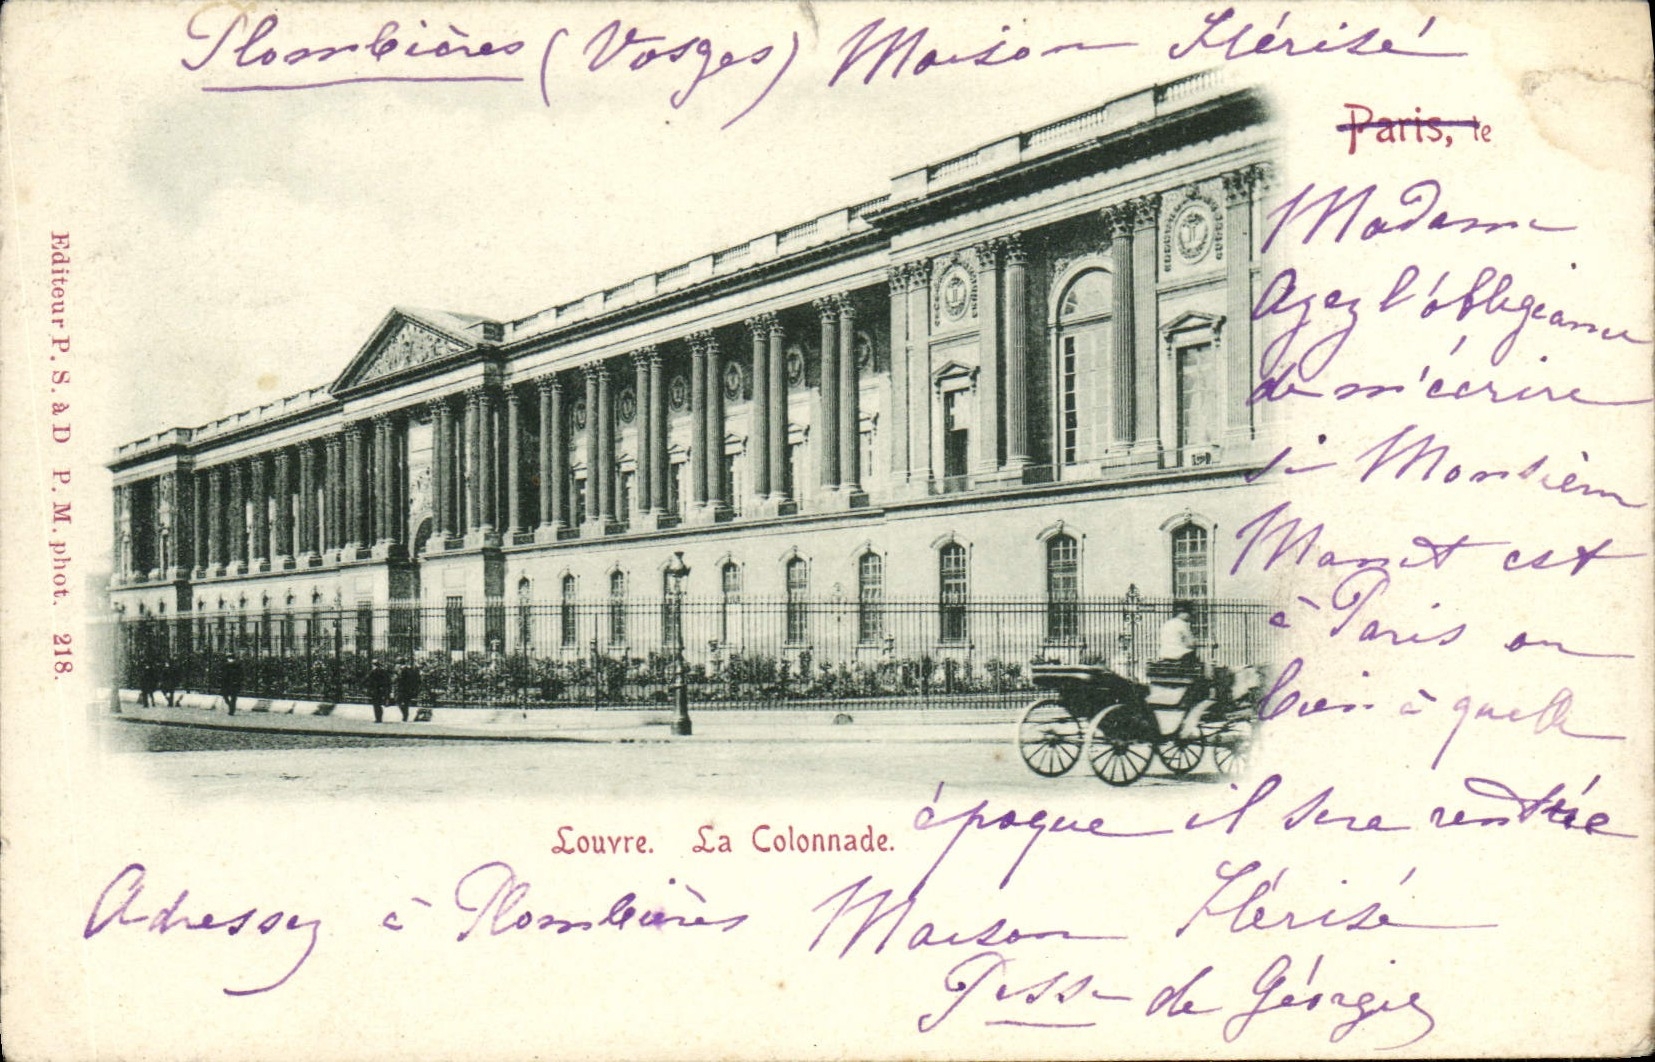 Plombières (Vosges) Maison Hérisé
Paris, le
Madame
Ayez l'obligeance
de m'écrire
si Monsieur
Manet est
à Paris ou
bien à quelle
époque il sera rentrée
Adressez à Plombières Maison Hérisé
Psse de Géorgie
Louvre. La Colonnade.
Editeur P. S. à D P. M. phot. 218.